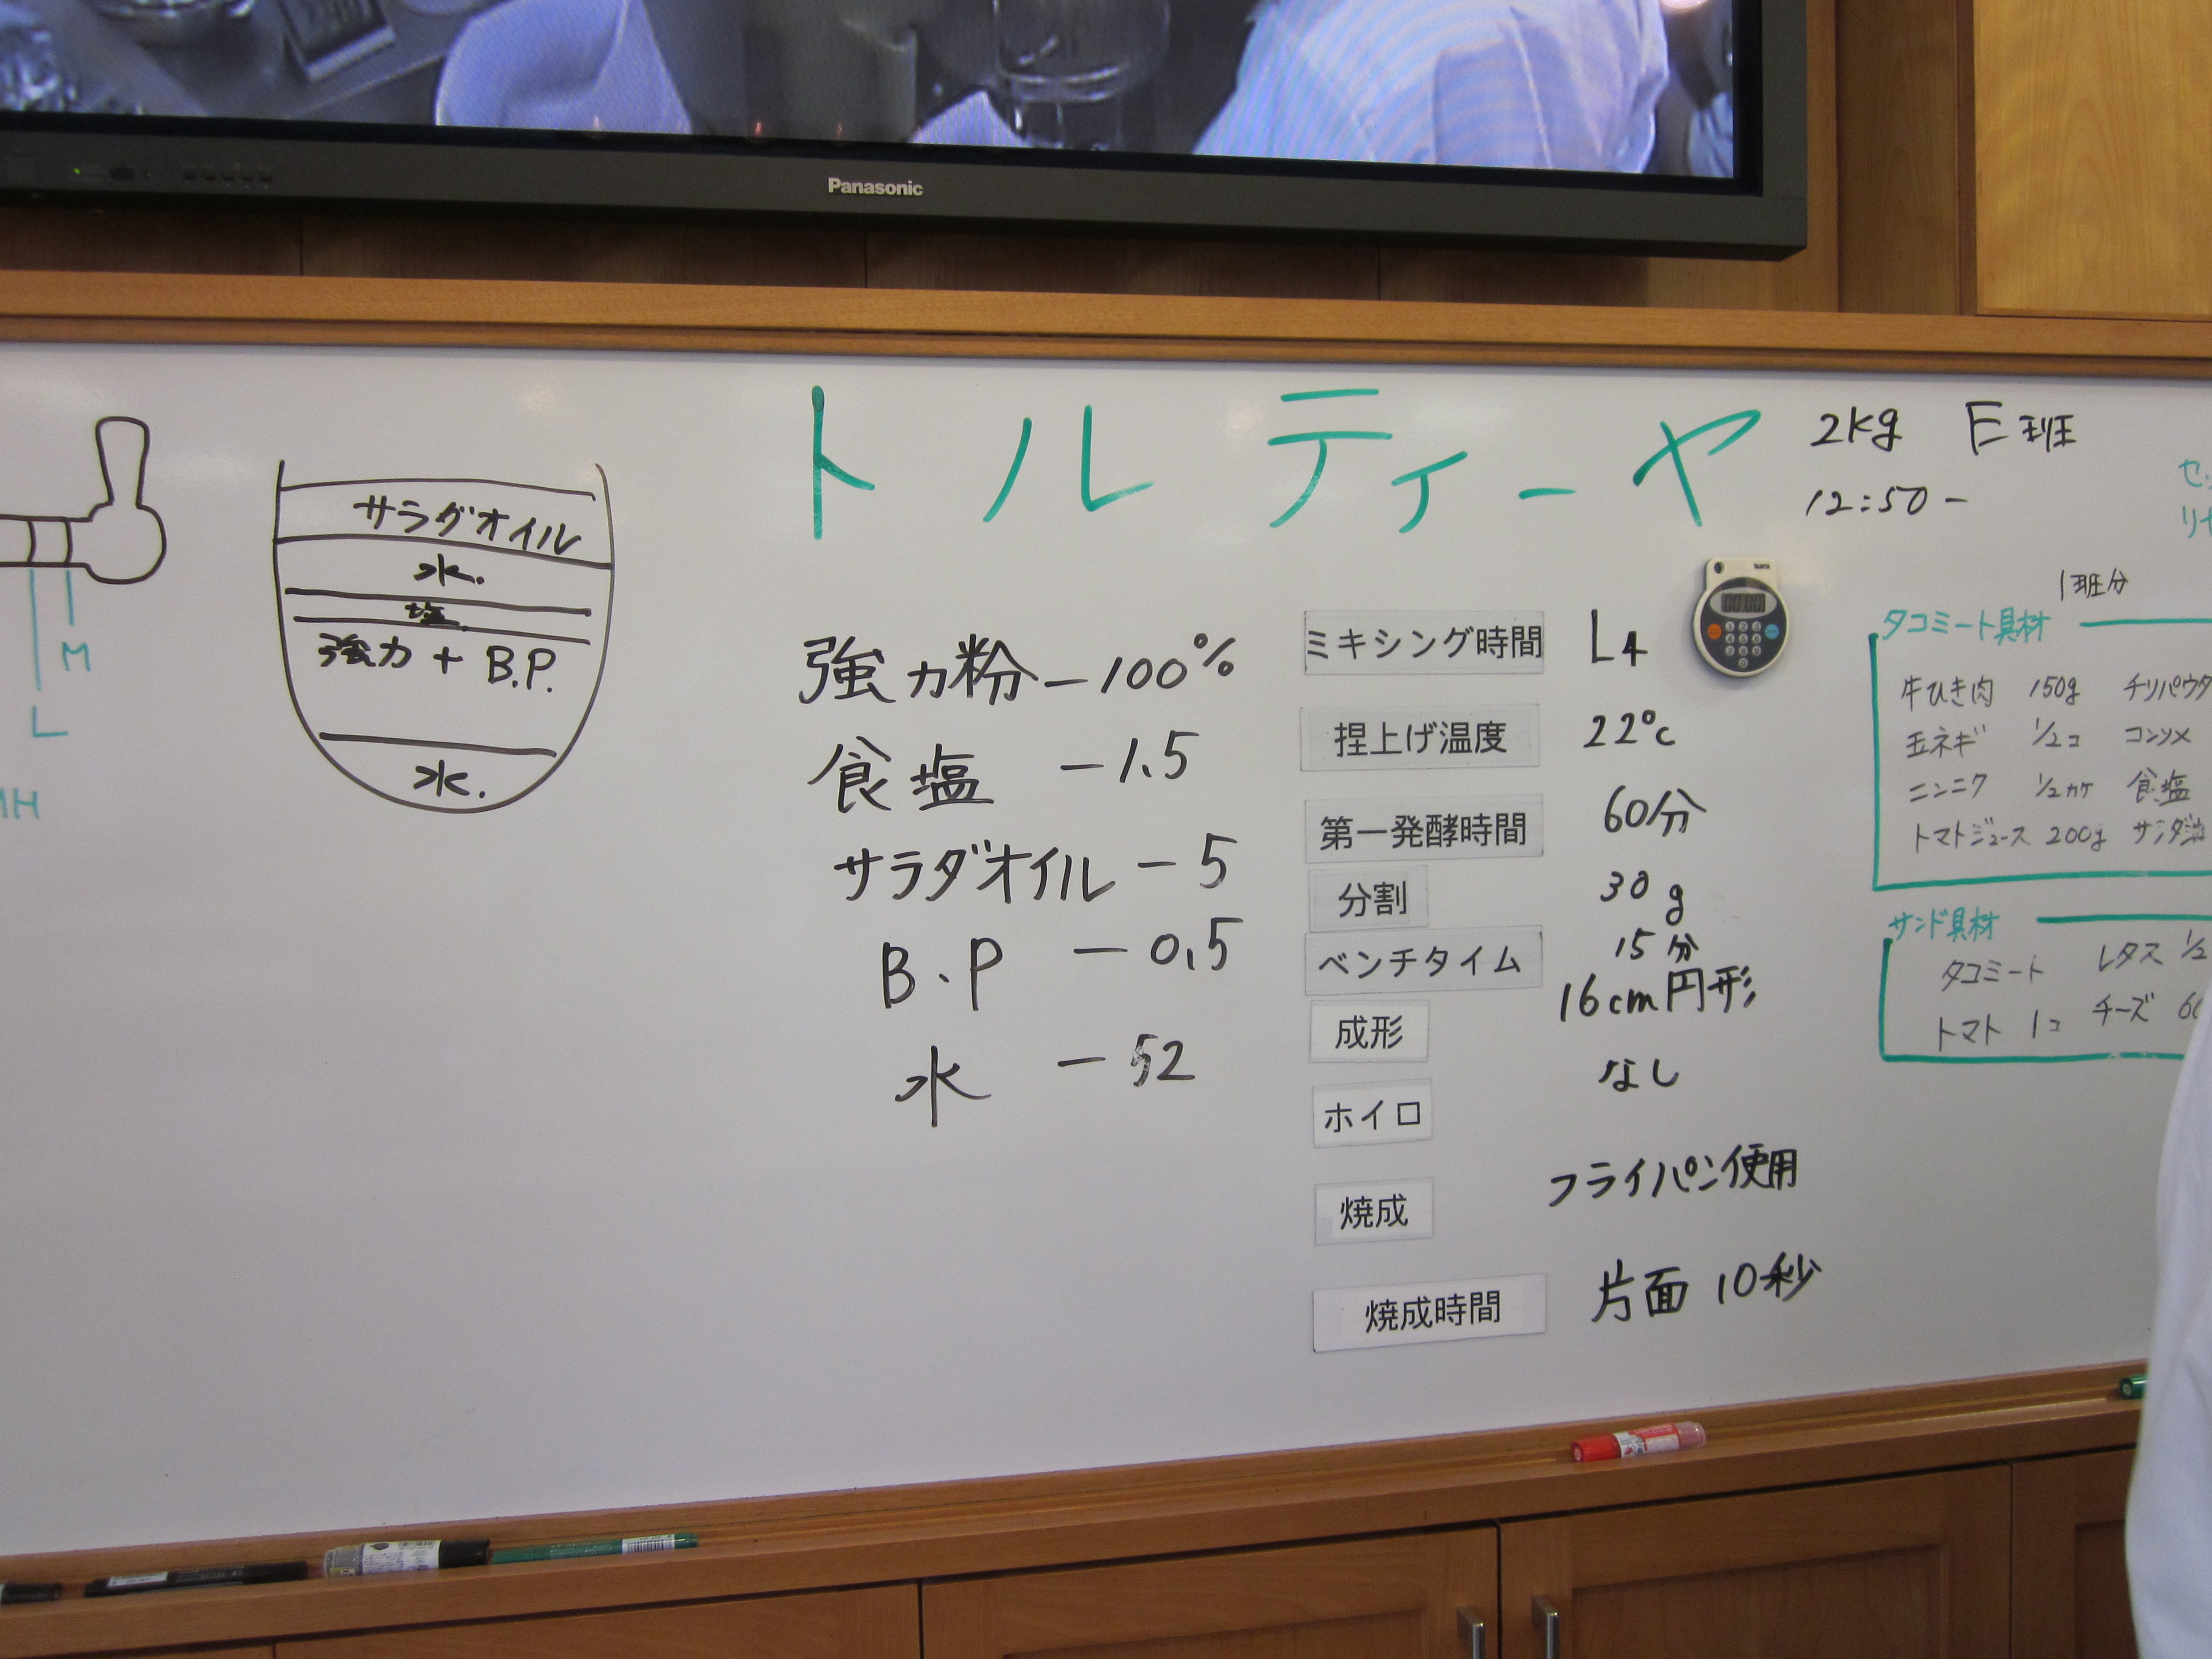 Panasonic
トルティーヤ
2kg E班
12:50-
サラダオイル
水.
塩
強力 + B.P.
水.
M
L
MH
強力粉-100%
食塩 -1.5
サラダオイル -5
B.P -0.5
水 -52
ミキシング時間 L4
捏上げ温度 22℃
第一発酵時間 60分
分割 30g
ベンチタイム 15分
成形 16cm円形
ホイロ なし
焼成 フライパン使用
焼成時間 片面 10秒
1班分
タコミート具材
牛ひき肉 150g チリパウダ
玉ネギ 1/2コ コンソメ
ニンニク 1/2カケ 食塩
トマトジュース 200g サラダ油
サンド具材
タコミート レタス 1/2
トマト 1コ チーズ 60